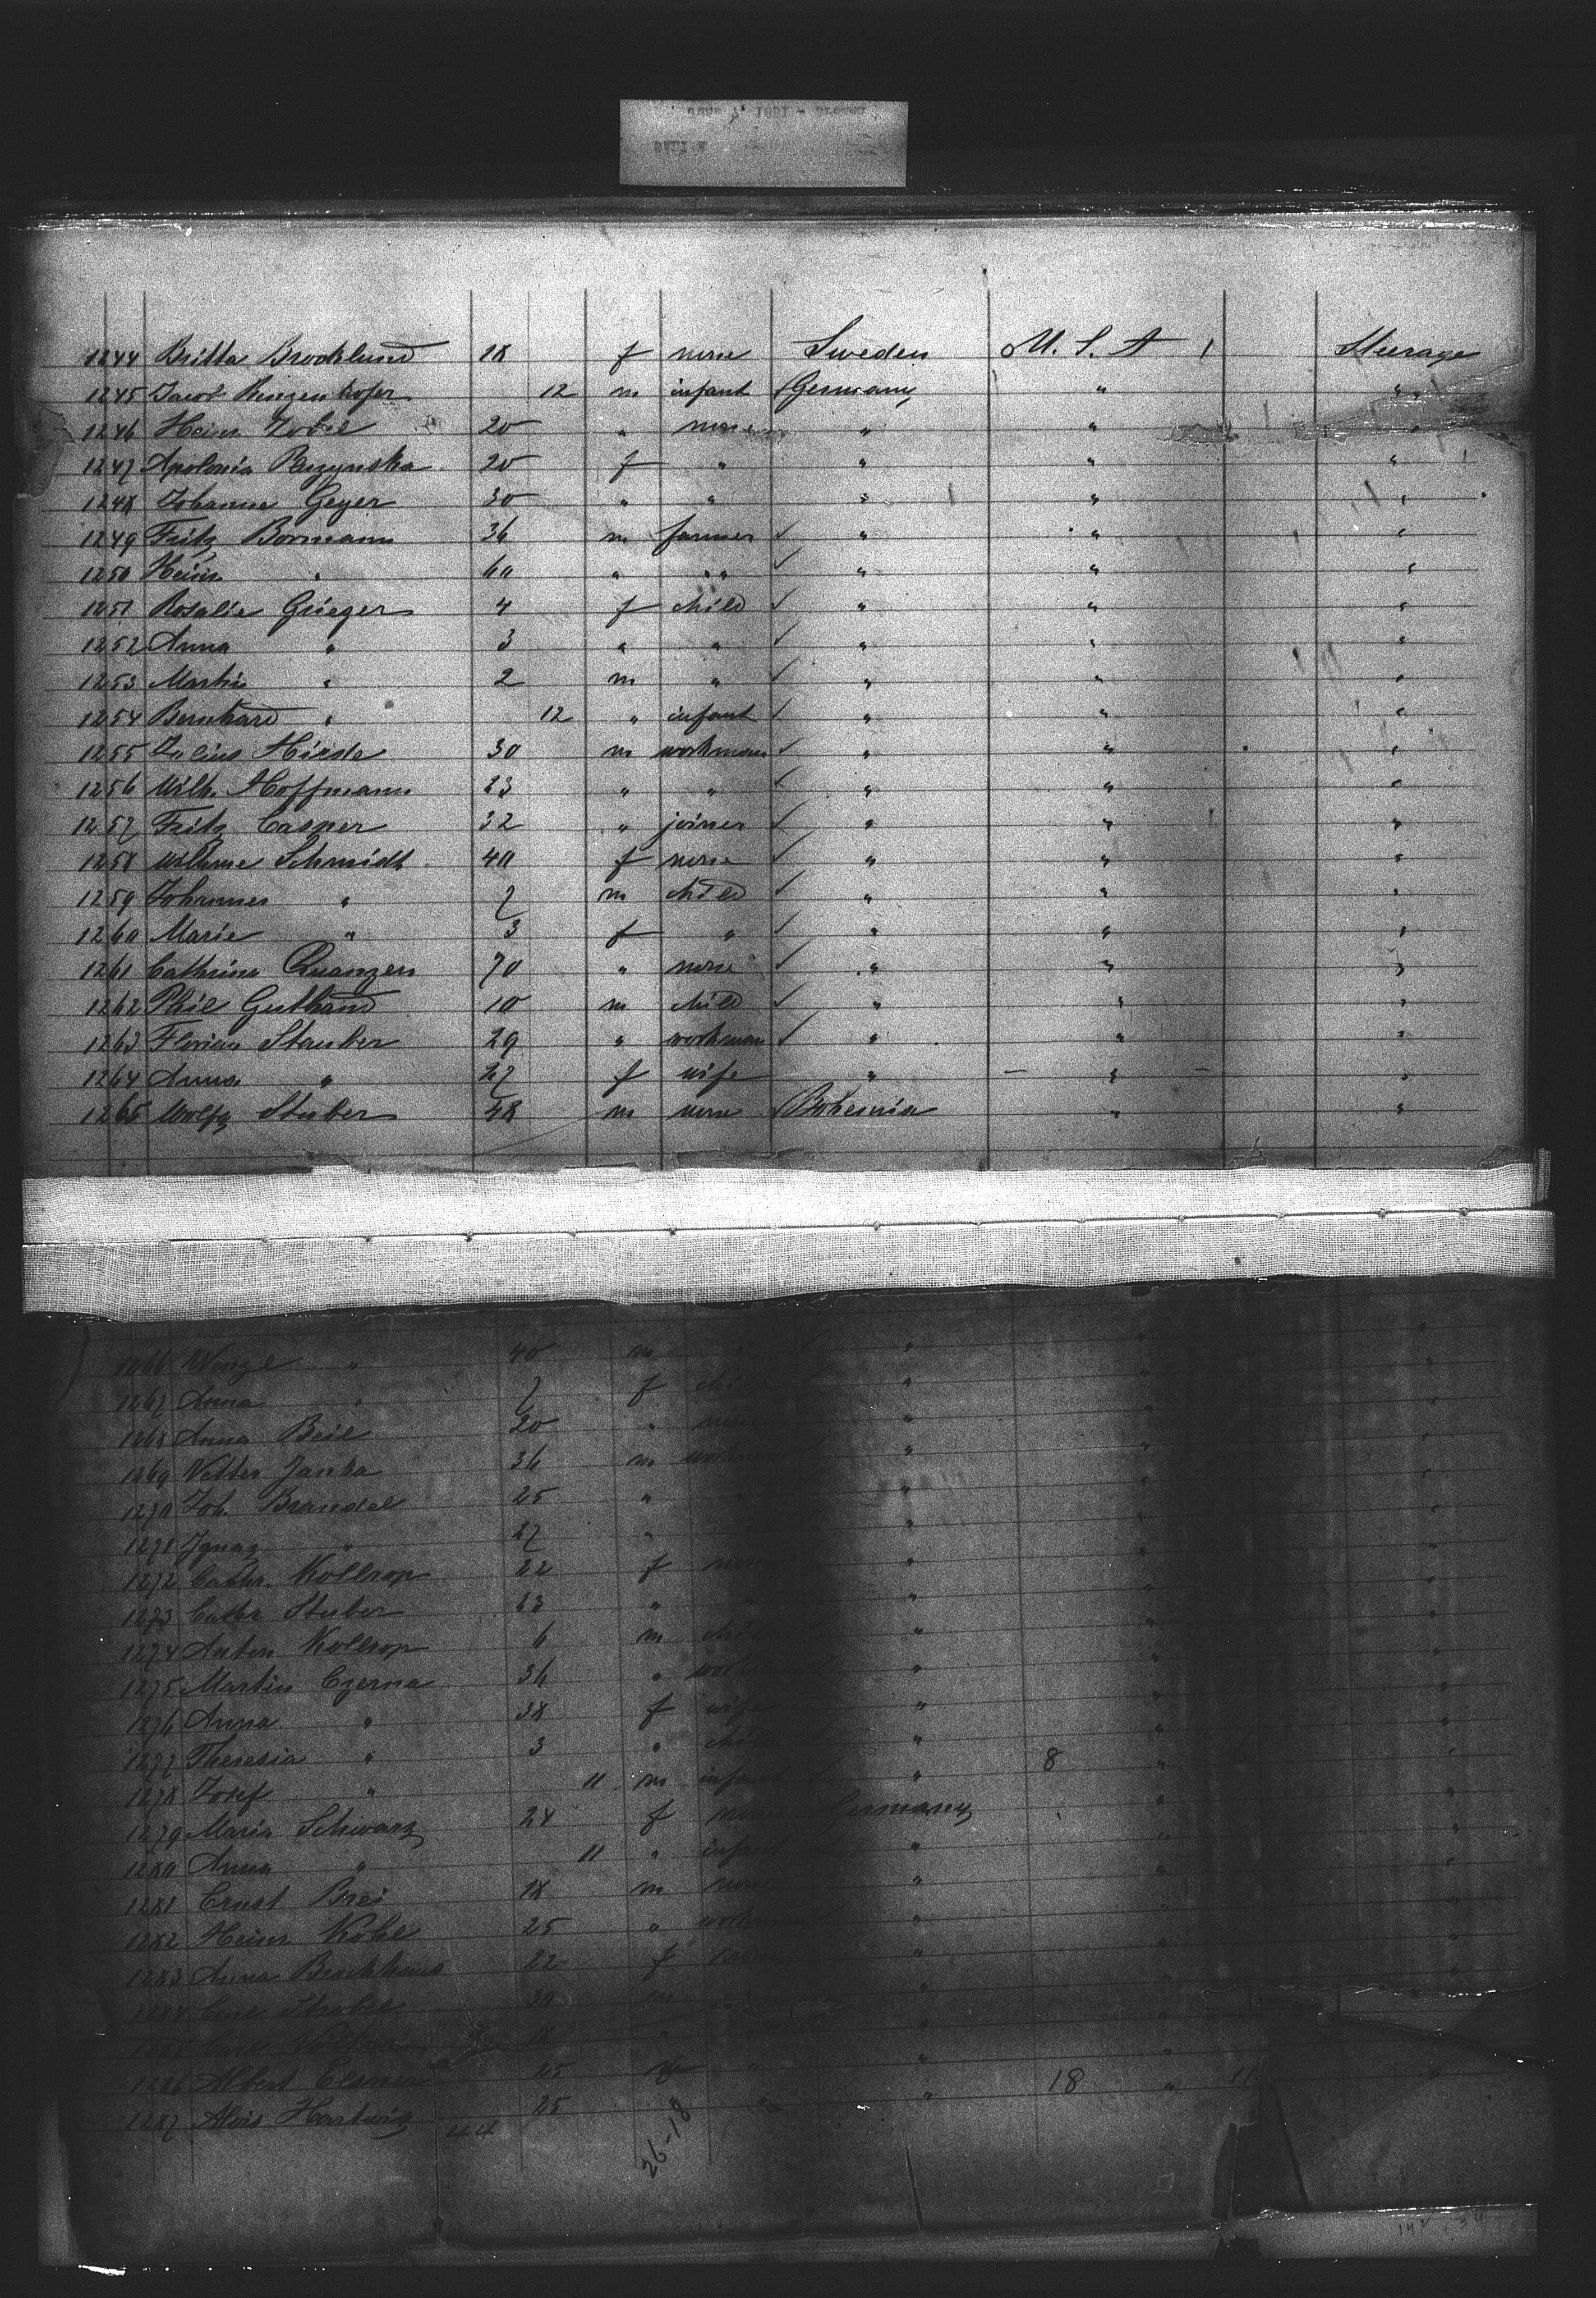 1244 Britta Brocklund 18 f none Sweden U. S. A Steerage
1245 Jacob Ringenhofer 12 m infant Germany " "
1246 Heinr Zobel 20 " none " " "
1247 Apolonia 20 f " " " "
1248 Johanne Geyer 30 " " " " "
1249 Fritz Bormann 36 m farmer " " "
1250 Heinr " 60 " " " " "
1251 Rosalie Grieger 4 f child " " "
1252 Anna " 3 " " " " "
1253 Martin " 2 m " " " "
1254 Bernhard " 12 " infant " " "
1255 Julius 30 m workman " " "
1256 Wilh. Hoffmann 23 " " " " "
1257 Fritz Casper 32 " joiner " " "
1258 Wilhme Schmidt 40 f none " " "
1259 Johannes " 7 m child " " "
1260 Marie " 3 f " " " "
1261 Cathrina 70 " none " " "
1262 Phil Guthand 10 m child " " "
1263 Florian Stauber 29 " workman " " "
1264 Anna " 27 f wife " " "
1265 Wolfg Stuber 48 m none Bohemia " "
1266 Wenzl " 40 m " " "
1267 Anna " 7 f child " " "
1268 Anna Beil 20 " none " " "
1269 Janka 36 m workman " " "
1270 Joh. Brandel 25 " " " "
1271 Ignaz " 27 " " " "
1272 Cathr. Kollrop 22 f none " " "
1273 Cathr Stuber 23 " " " "
1274 Anton Kollrop 6 m child " " "
1275 Martin Czerna 36 " workman " " "
1276 Anna " 38 f wife " " "
1277 Theresia " 3 " child " " "
1278 Josef " 11 m infant " 8 " "
1279 Maria Schwarz 24 f none Germany " "
1280 Anna " 11 " infant " " "
1281 Ernst Brei 18 m none " " "
1282 Heinr Kobel 25 " workman " " "
1283 Anna Brockhaus 22 f none " " "
1284 Carl 30 m " "
1285 Carl 18 " " "
1286 Albert Elsner 25 " " " "
1287 Alois Hartwig 25 " " 18 " "
44
26-18